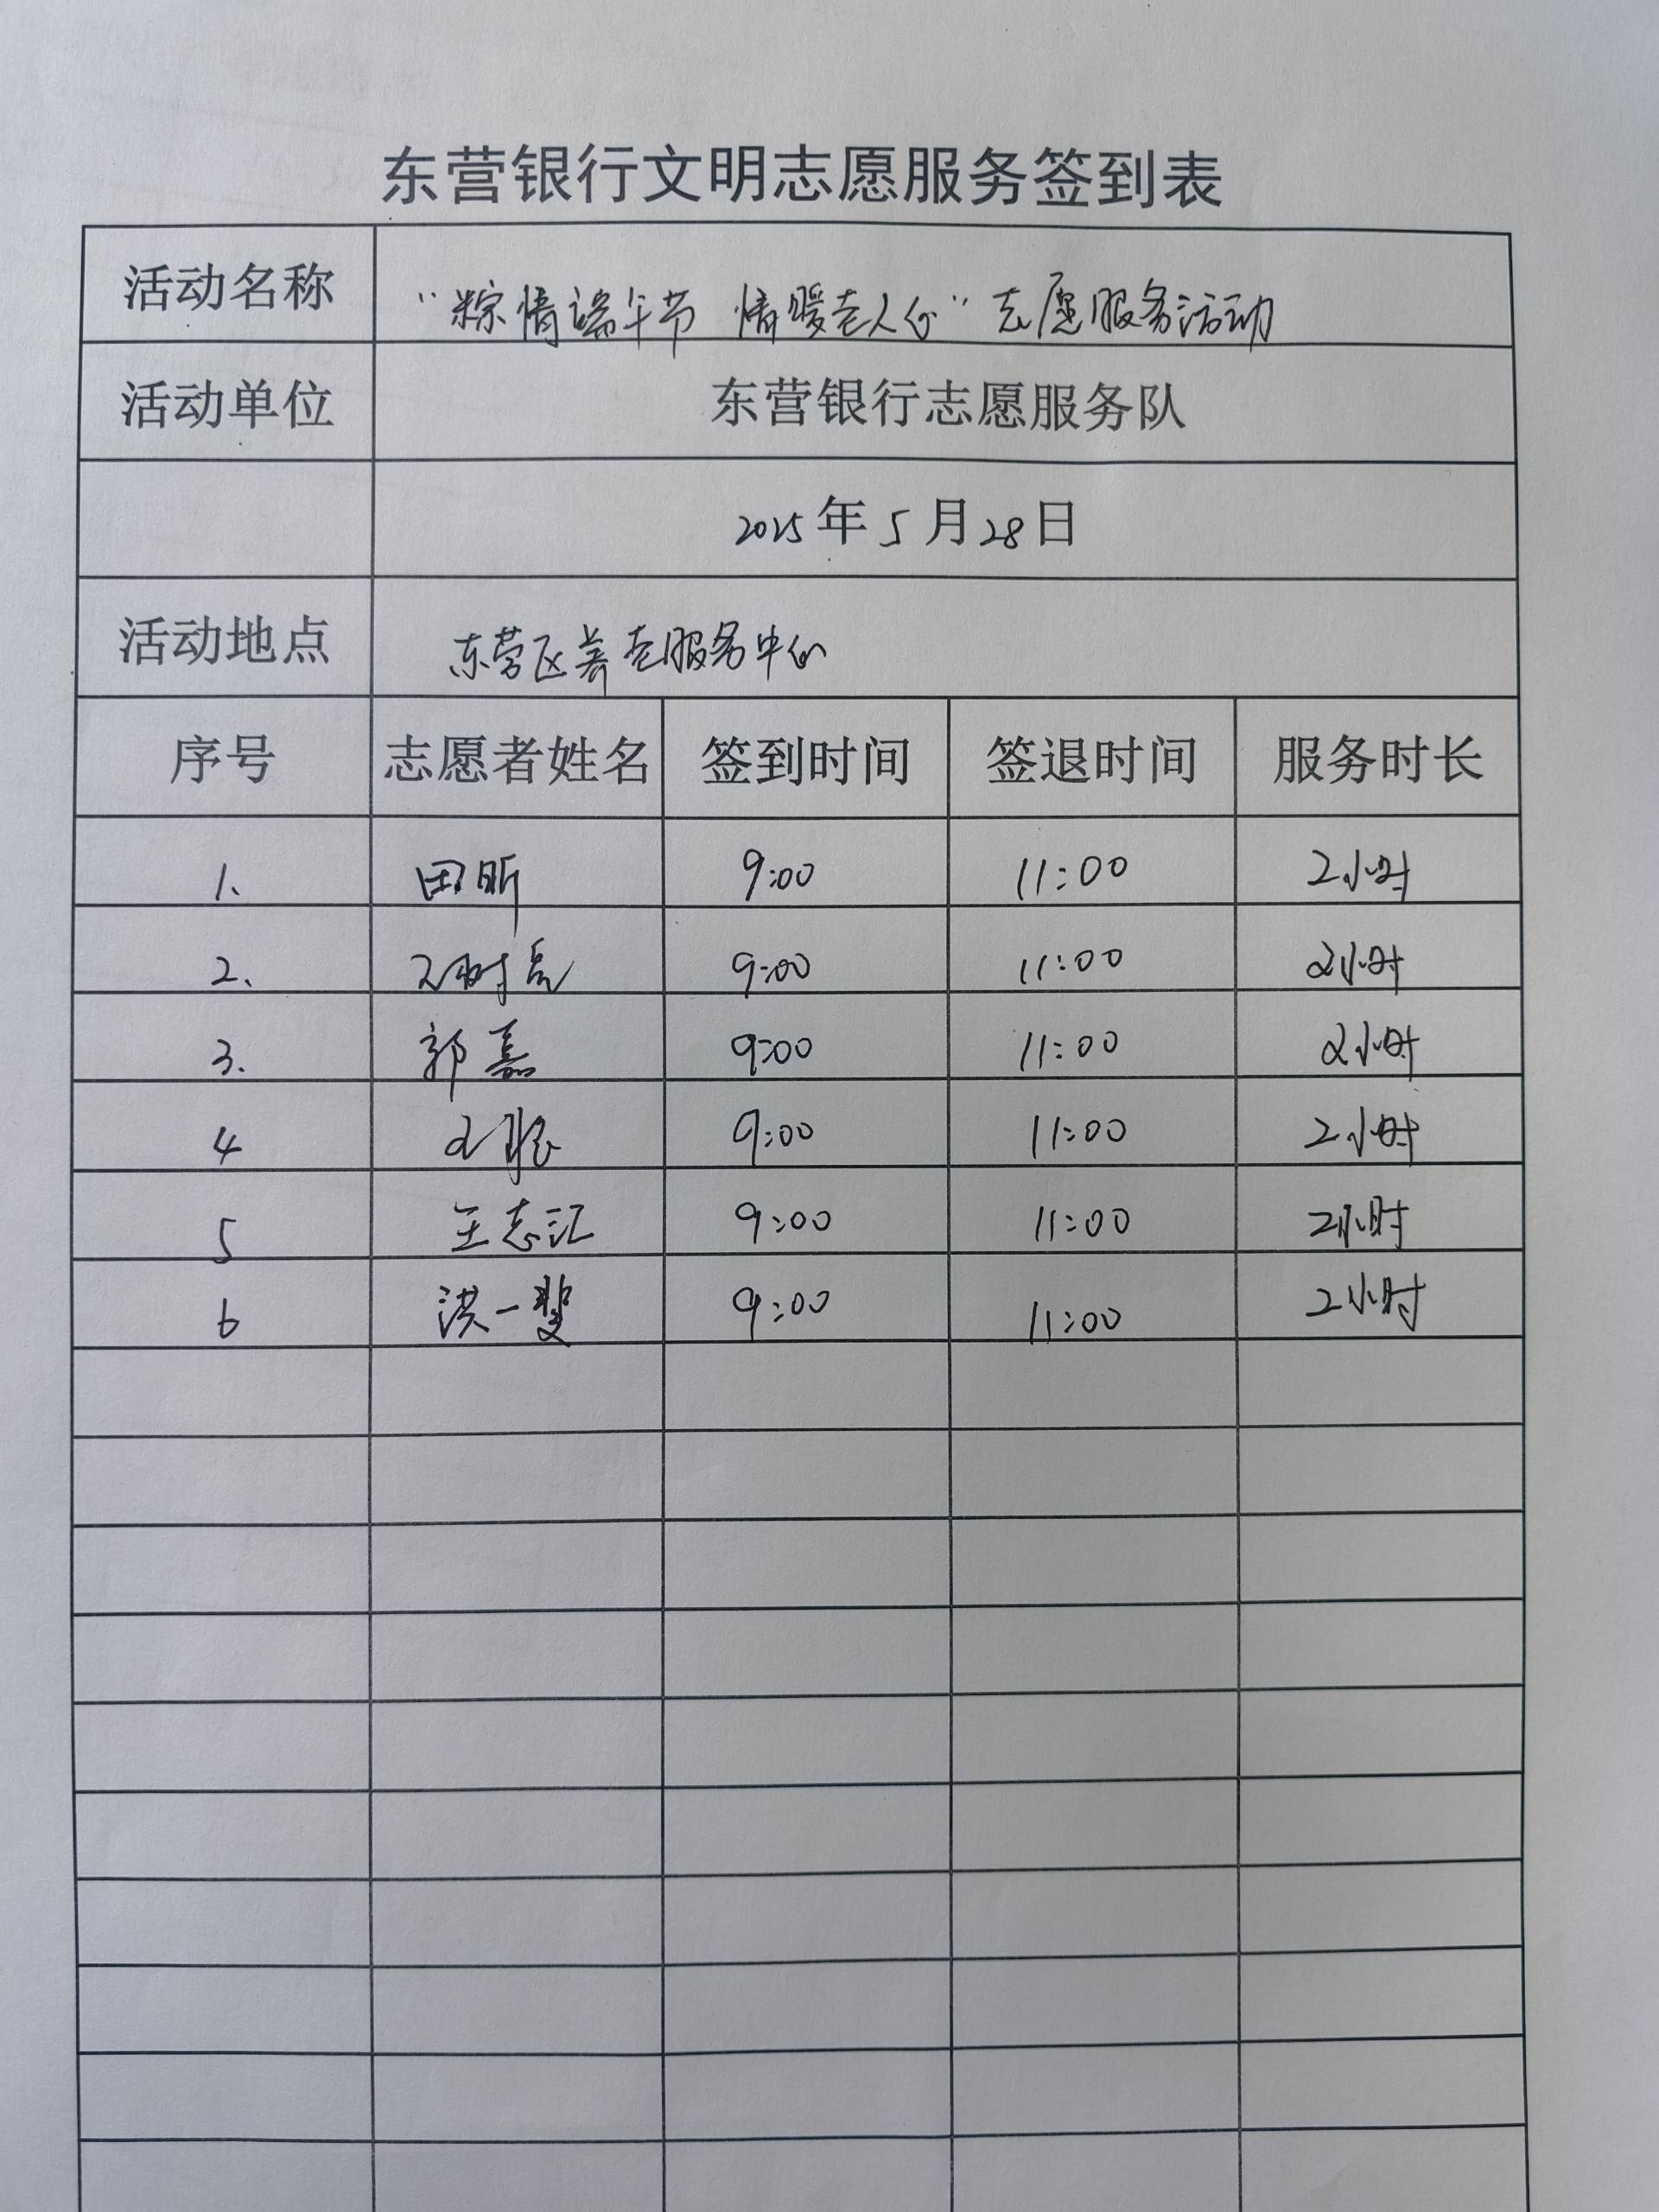 东营银行文明志愿服务签到表
活动名称 “粽情端午节 情暖老人心”志愿服务活动
活动单位 东营银行志愿服务队
2025年5月28日
活动地点 东营区养老服务中心
序号 志愿者姓名 签到时间 签退时间 服务时长
1、 田昕 9:00 11:00 2小时
2、 9:00 11:00 2小时
3、 郭嘉 9:00 11:00 2小时
4 9:00 11:00 2小时
5 王志江 9:00 11:00 2小时
6 洪一斐 9:00 11:00 2小时